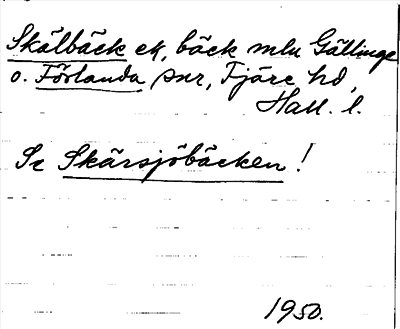 Skälbäck ek, bäck mln Gällinge
o. Förlanda snr, Fjäre hd,
Hall. l.
Se Skärsjöbäcken!
1950.